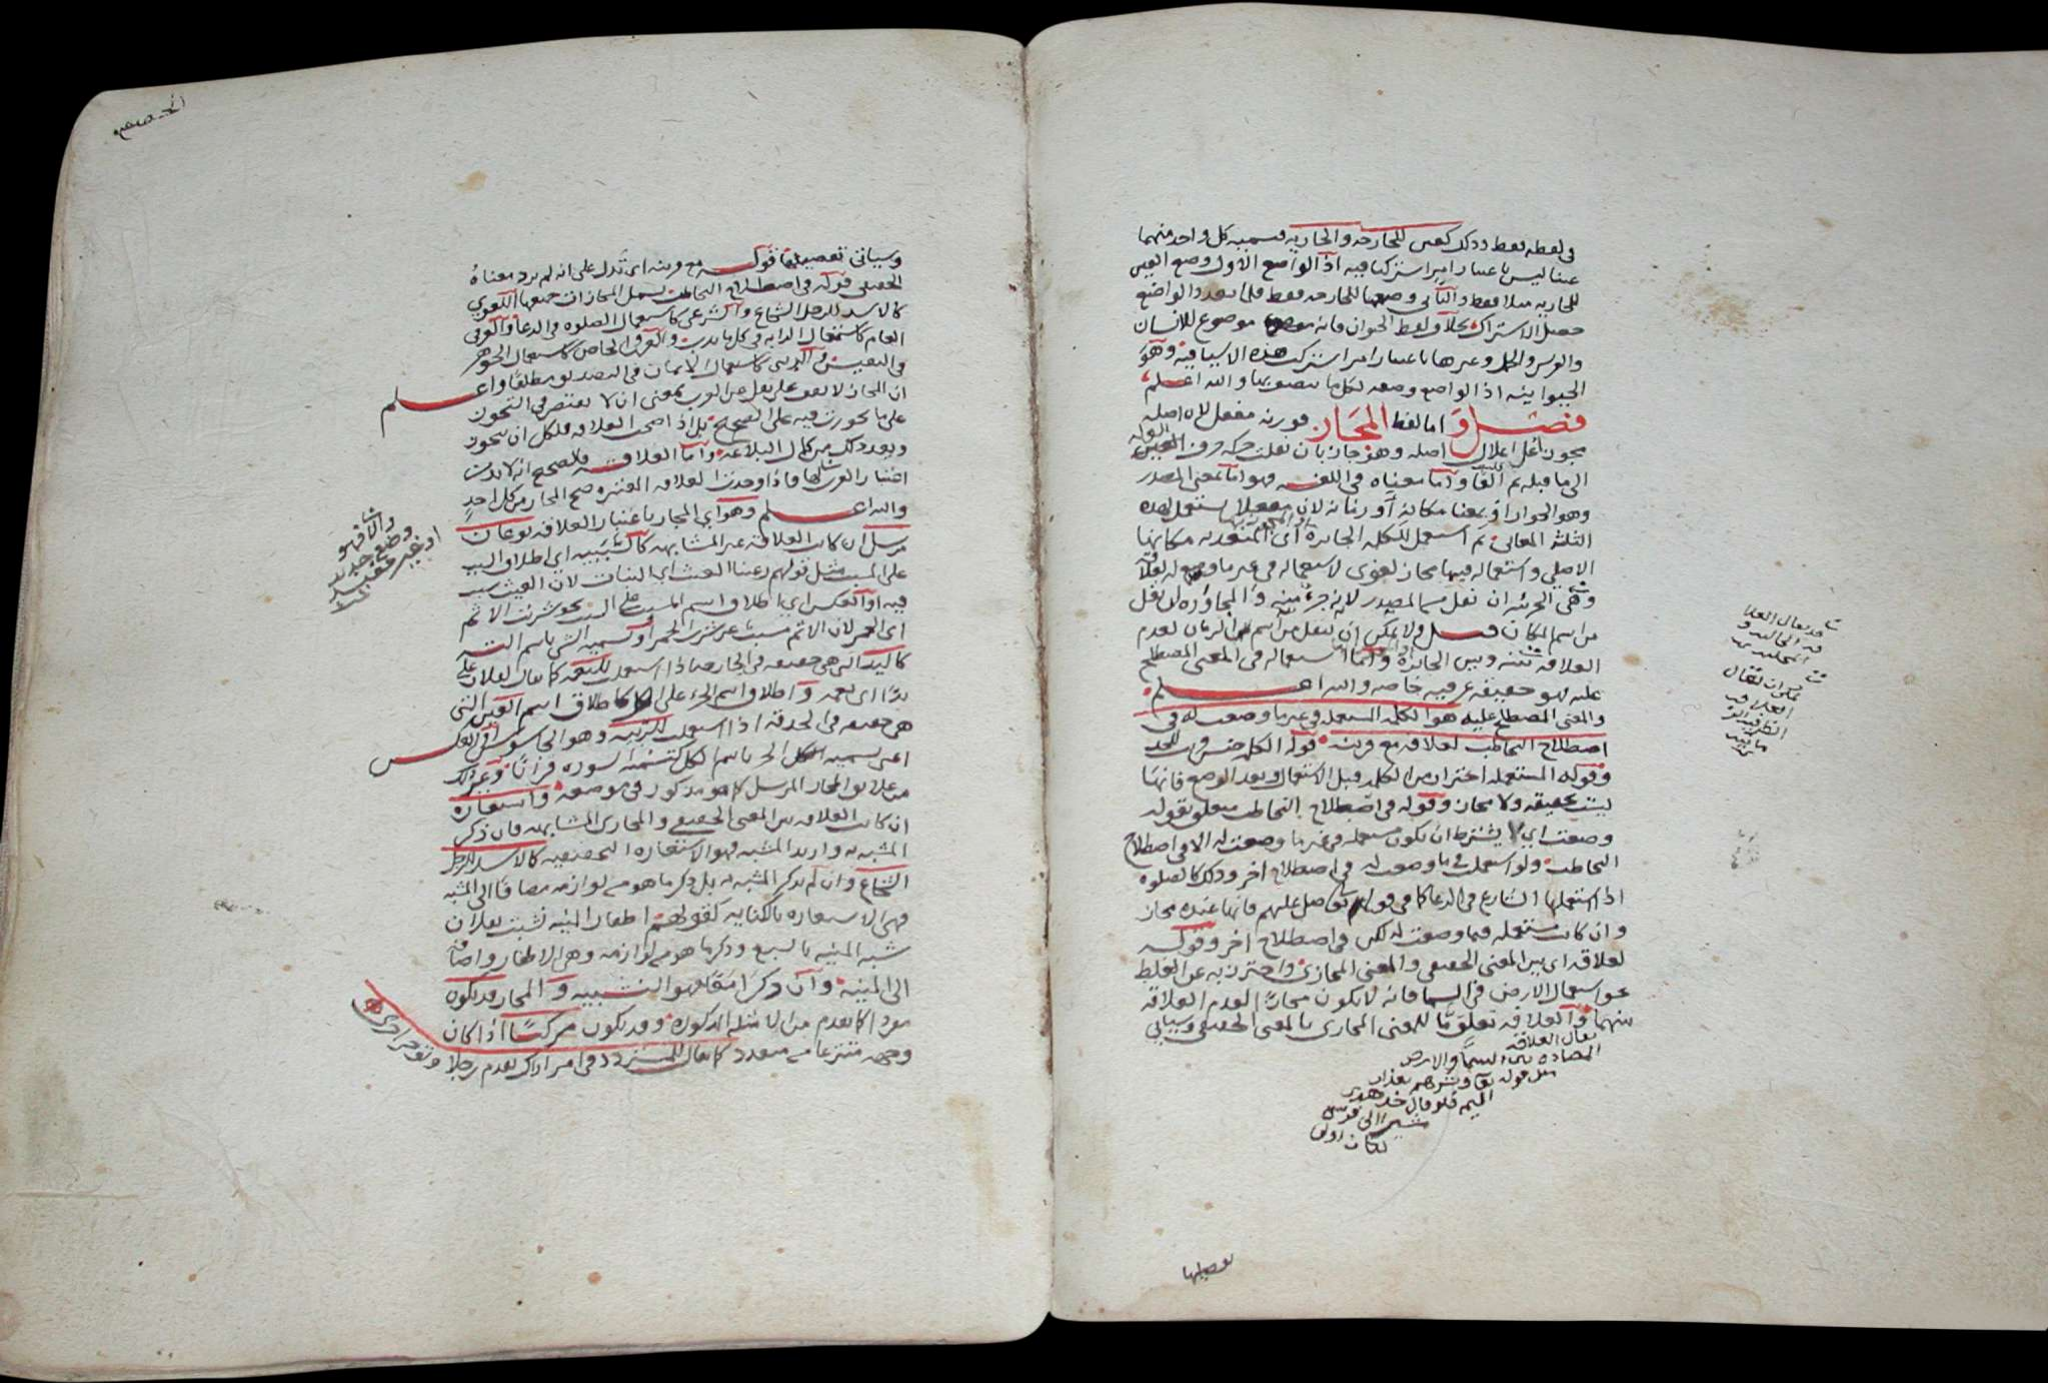 في لفظه فقط وذلك كعين للجارحه والجاريه فتسميه كل واحد منهما
عينا ليس باعتبار امر اشتركا فيه اذ الواضع الاول وضع العين
للجاريه مثلا فقط والثاني وضعها للجارحه فقط فلما تعدد الواضع
حصل الاشتراك بخلاف لفظ الحيوان فانه موضوع للانسان
والفرس والجمل وغيرها باعتبار امر اشتركت هذه الاشيا فيه وهو
الحيوانيه اذ الواضع وضعه لكل ما يتصف بها والله اعلم
فصل واما لفظ المجاز فوزنه مفعل لان اصله
مجوز اعل اعلال اصله وهو جاز بان نقلت حركه حرف العله
الى ما قبله ثم قلبت الفا واما معناه في اللغه فهو اما بمعنى المصدر
وهو الجواز او بمعنا مكانه او زمانه لان مفعلا يستعمل لهذه
الثلثه المعاني ثم استعمل للكلمه الجائزه اي المتعديه مكانها
الاصلي واستعماله فيها مجاز لغوي لاستعماله في غير ما وضع له لعلاقه
وهي الجزئيه ان نقل من المصدر لانه جزء منه والمجاوره ان نقل
من اسم المكان قيل ولا يمكن ان ينقل من اسم الزمان لعدم
العلاقه بينه وبين الجائزه واما استعماله في المعنى المصطلح
عليه فهو حقيقه عرفيه خاصه والله اعلم
والمعنى المصطلح عليه هو الكلمه المستعمله في غير ما وضعت له في
اصطلاح التخاطب لعلاقه مع قرينه قوله الكلمه جنس للحد
وقوله المستعمله احتراز من الكلمه قبل الاستعمال وبعد الوضع فانها
ليست بحقيقه ولا مجاز وقوله في اصطلاح التخاطب متعلق بقوله
وضعت اي لا يشترط ان تكون مستعمله في غير ما وضعت له الا في اصطلاح
التخاطب ولو استعملت في ما وضعت له في اصطلاح اخر وذلك كالصلوه
اذا استعملها الشارع في الدعا كما في قوله تعالى وصل عليهم فانها عنده مجاز
وان كانت مستعمله فيما وضعت له لكن في اصطلاح اخر وقوله
لعلاقه اي بين المعنى الحقيقي والمعنى المجازي واحترز به عن الغلط
نحو استعمال الارض في السما فانه لا يكون مجازا لعدم العلاقه
بينهما والعلاقه تعلق ما للمعنى المجازي بالمعنى الحقيقي وسياتي
يقال العلاقه
المضاده بين السما والارض
مثل قوله تعا فبشرهم بعذاب
اليم فلو قال خذ هذا
مشيرا الى فرس
لكان اولى
قد يقال العلا
يمكن ان يقال
العلاقه
تفصيلها
وسياتي تفصيلها قوله مع قرينه اي تدل على انه لم يرد معناه
الحقيقي قوله في اصطلاح التخاطب يشمل المجازات جميعها اللغوي
كالاسد للرجل الشجاع والشرعي كاستعمال الصلوه في الدعا والعرفي
العام كاستعمال الدابه في كل ما يدب والعرفي الخاص كاستعمال الجوهر
في النفيس والديني كاستعمال الايمان في التصديق مطلقا واعلم
ان المجاز لا يقف على نقل عن العرب بمعنى ان لا يقتصر في التجوز
على ما تجوزت فيه على الصحيح بل اذا صحت العلاقه فلكل ان يتجوز
ويعد ذلك من كمال البلاغه واما العلاقه فالصحيح انه لا بد من
اعتبار العرب لها فاذا وجدت العلاقه المعتبره صح المجاز من كل احد
والله اعلم وهو اي المجاز باعتبار العلاقه نوعان
مرسل ان كانت العلاقه غير المشابهه كالسببيه اي اطلاق السبب
على المسبب مثل قولهم رعينا الغيث اي النبات لان الغيث سبب
فيه او العكس اي اطلاق اسم المسبب على السبب نحو شربت الاثم
اي الخمر لان الاثم مسبب عن شرب الخمر او تسميه الشي باسم الته
كاليد التي هي حقيقه في الجارحه اذا استعملت للنعمه كما يقال لفلان علي
يدا اي نعمه واطلاق اسم الجزء على الكل كاطلاق اسم العين التي
هي حقيقه في الحدقه اذا استعملت للربيه وهو الجاسوس او العكس
اعني تسميه الجزء باسم الكل كتسميه السوره قرانا وغير ذلك
من علائق المجاز المرسل كما هو مذكور في موضعه واستعاره
ان كانت العلاقه بين المعنى الحقيقي والمجازي المشابهه فان ذكر
المشبه به واريد المشبه فهو الاستعاره التحقيقيه كالاسد للرجل
الشجاع وان لم يذكر المشبه به بل ذكر ما هو من لوازمه مضافا الى المشبه
فهي الاستعاره بالكنايه كقولهم اظفار المنيه نشبت بفلان
شبه المنيه بالسبع وذكر ما هو من لوازمه وهي الاظفار واضافه
الى المنيه وان ذكرا معا فهو التشبيه والمجاز قد يكون
مفردا كما تقدم من الامثله المذكوره وقد يكون مركبا اذا كان
وجهه منتزعا من متعدد كما يقال للمتردد في امر اراك تقدم رجلا وتوخر اخرى
والا فهو
وضع جديد
او غير مفيد